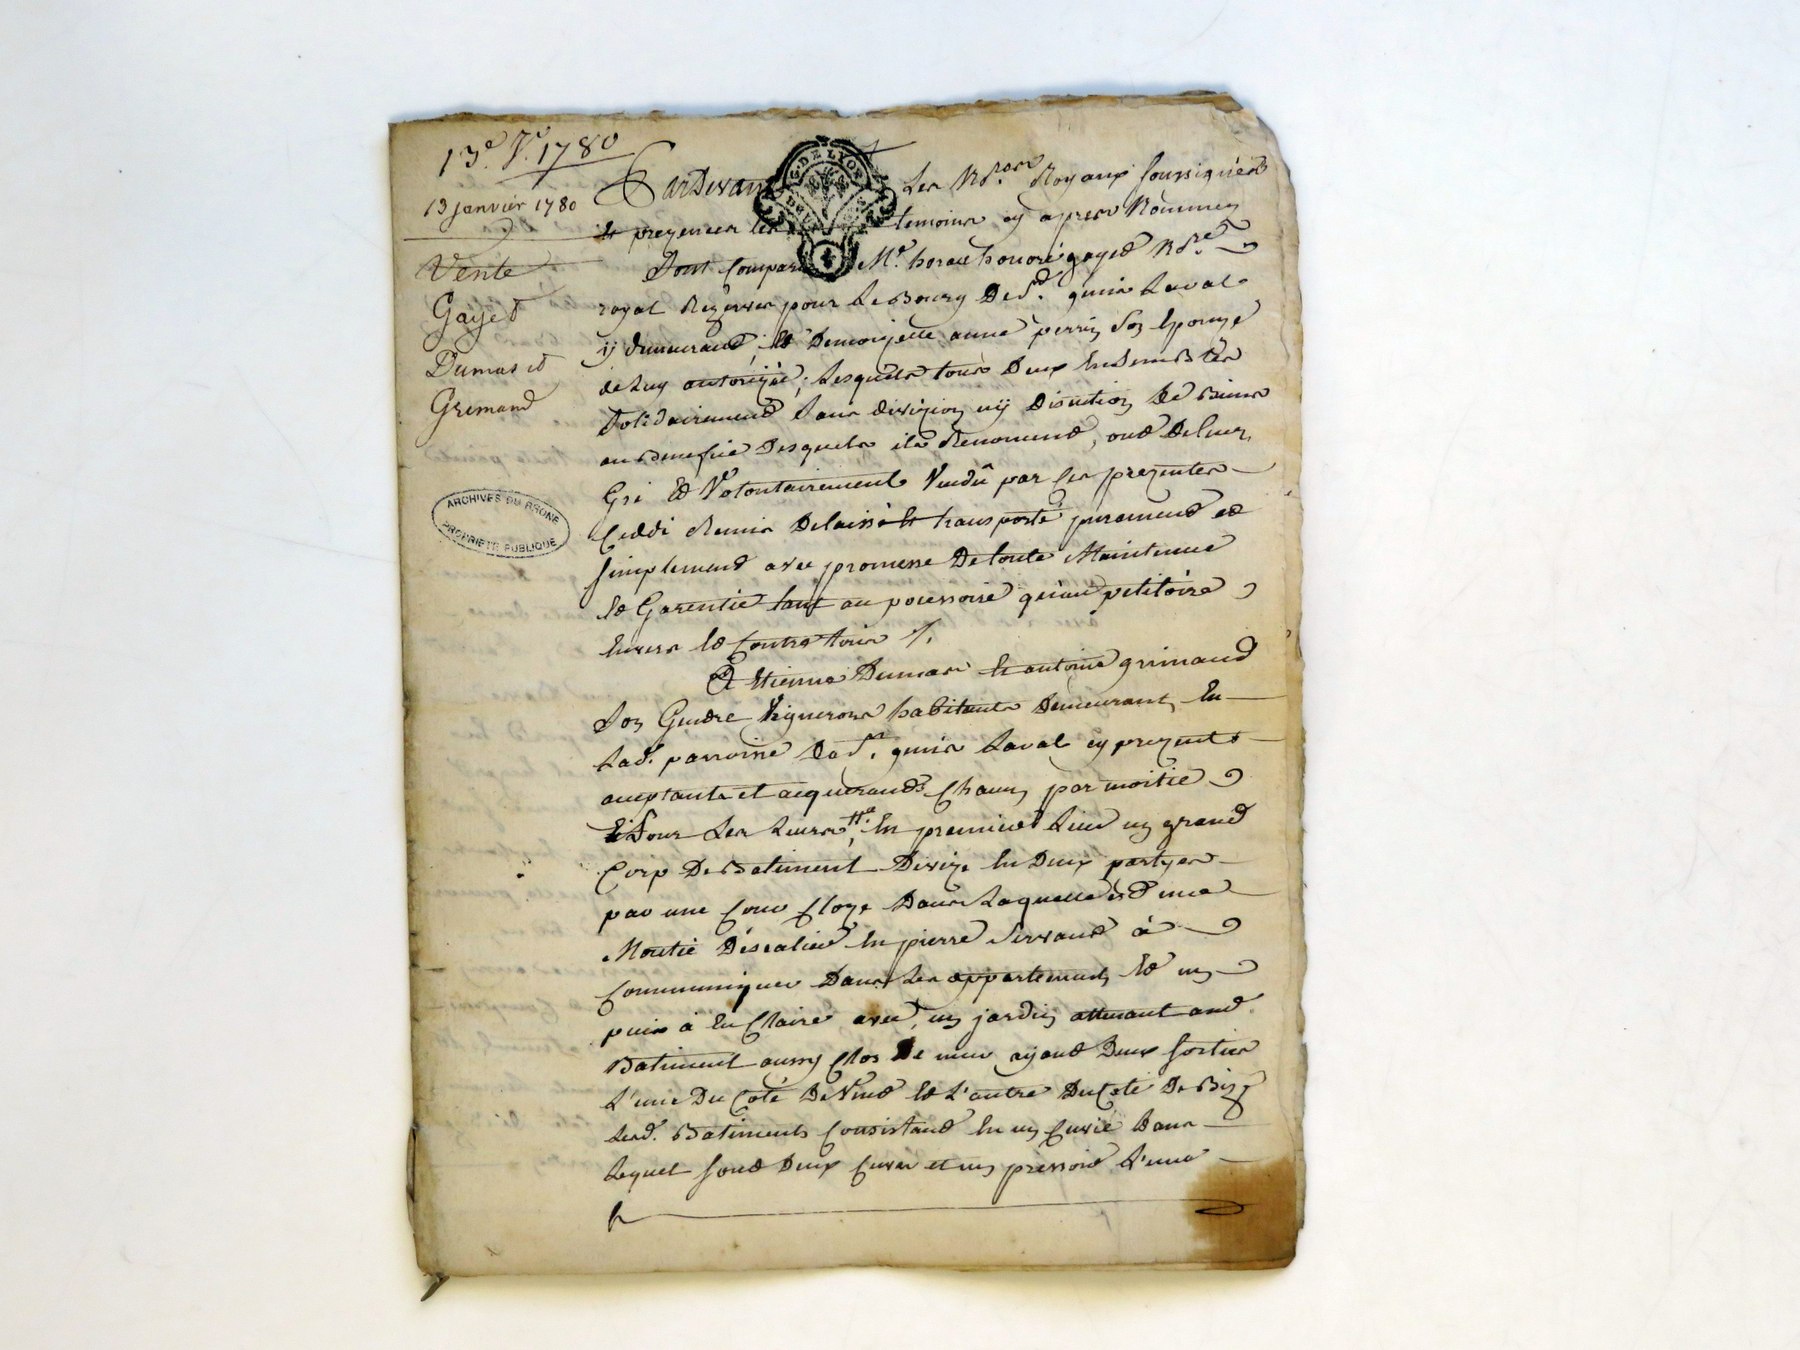 13e Jr. 1780
13 janvier 1780
Vente
Gayet
Dumas et
Grimand
ARCHIVES DU RHONE
PROPRIETE PUBLIQUE
G. DE LYON
Pardevant Les Nores. Royaux soussignés
et prezences les temoins cy apres Nommez
Sont Compar Me. horace honoré gayet Nore.
royal Rezerver pour Le Bourg De St. genis Laval
y demeurant, et Demoizelle anne perrin son Epouze
de Luy autorizée, Lesquels tous Deux Ensembles
solidairement sans divizion ny Discution De Biens
au Benefice Desquels ils Renoncent, ont De leur
Gré et Volontairement Vendu par ces prezentes
Ceddé Remis Delaissé et transporté purement et
simplement avec promesse De toute Maintenue
et Garentie tant au pocessoire qu'au petitoire
Envers et Contre tous /.
A Etienne Dumas et antoine grimand
son Gendre Vignerons habitants Demeurant En
Lad. parroisse De St. genis Laval cy prezents
acceptants et acquerands Chacun par moitié
et Pour Les Leurs, En premier Lieu un grand
Corp De Batiment Divizé En Deux partyes
par une Cour Cloze Dans Laquelle est une
Montée D'éscalier En pierre servant à
Communiquer Dans Les appartements et un
puis à Eau Claire avec un jardin attenant aud.
Batiment aussy Clos De mur ayant Deux sorties
L'une Du Coté De Vent et L'autre Du Coté De Bize
Lesd. Batiments Consistant En un Cuvier Dans
Lequel sont Deux Cuves et un pressoir L'une